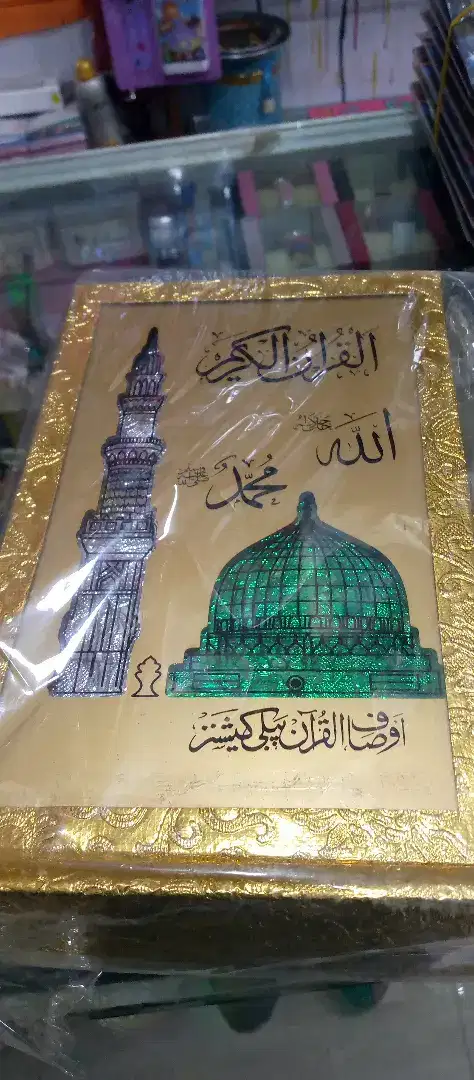 القرآن الكريم
الله جل جلالہ
محمد ﷺ
اوصاف القرآن پبلی کیشنز